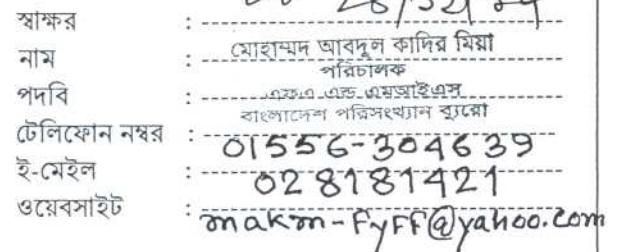 স্বাক্ষর :
নাম : মোহাম্মদ আবদুল কাদির মিয়া
পরিচালক
পদবি : এফএ এন্ড এমআইএস
বাংলাদেশ পরিসংখ্যান ব্যুরো
টেলিফোন নম্বর : 01556-304639
ই-মেইল : 028181421
ওয়েবসাইট : makm-fyff@yahoo.com